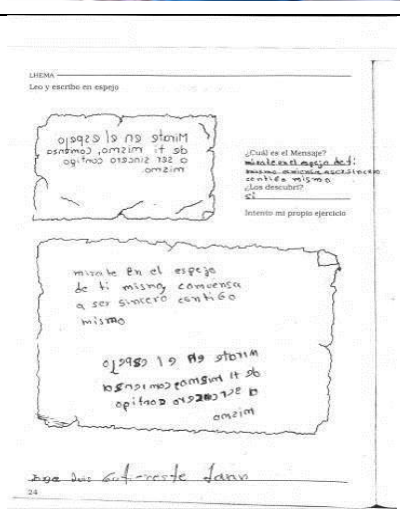 LHEMA
Leo y escribo en espejo
Mirate en el espejo
de ti mismo, comienza
a ser sincero contigo
mismo.
¿Cuál es el Mensaje?
mirate en el espejo de ti
mismo comienza a ser sincero
contigo mismo
¿Los descubrí?
si
Intento mi propio ejercicio
mirate en el espejo
de ti mismo, comienza
a ser sincero contigo
mismo
Mirate en el espejo
de ti mismo comienza
a ser sincero contigo
mismo
24